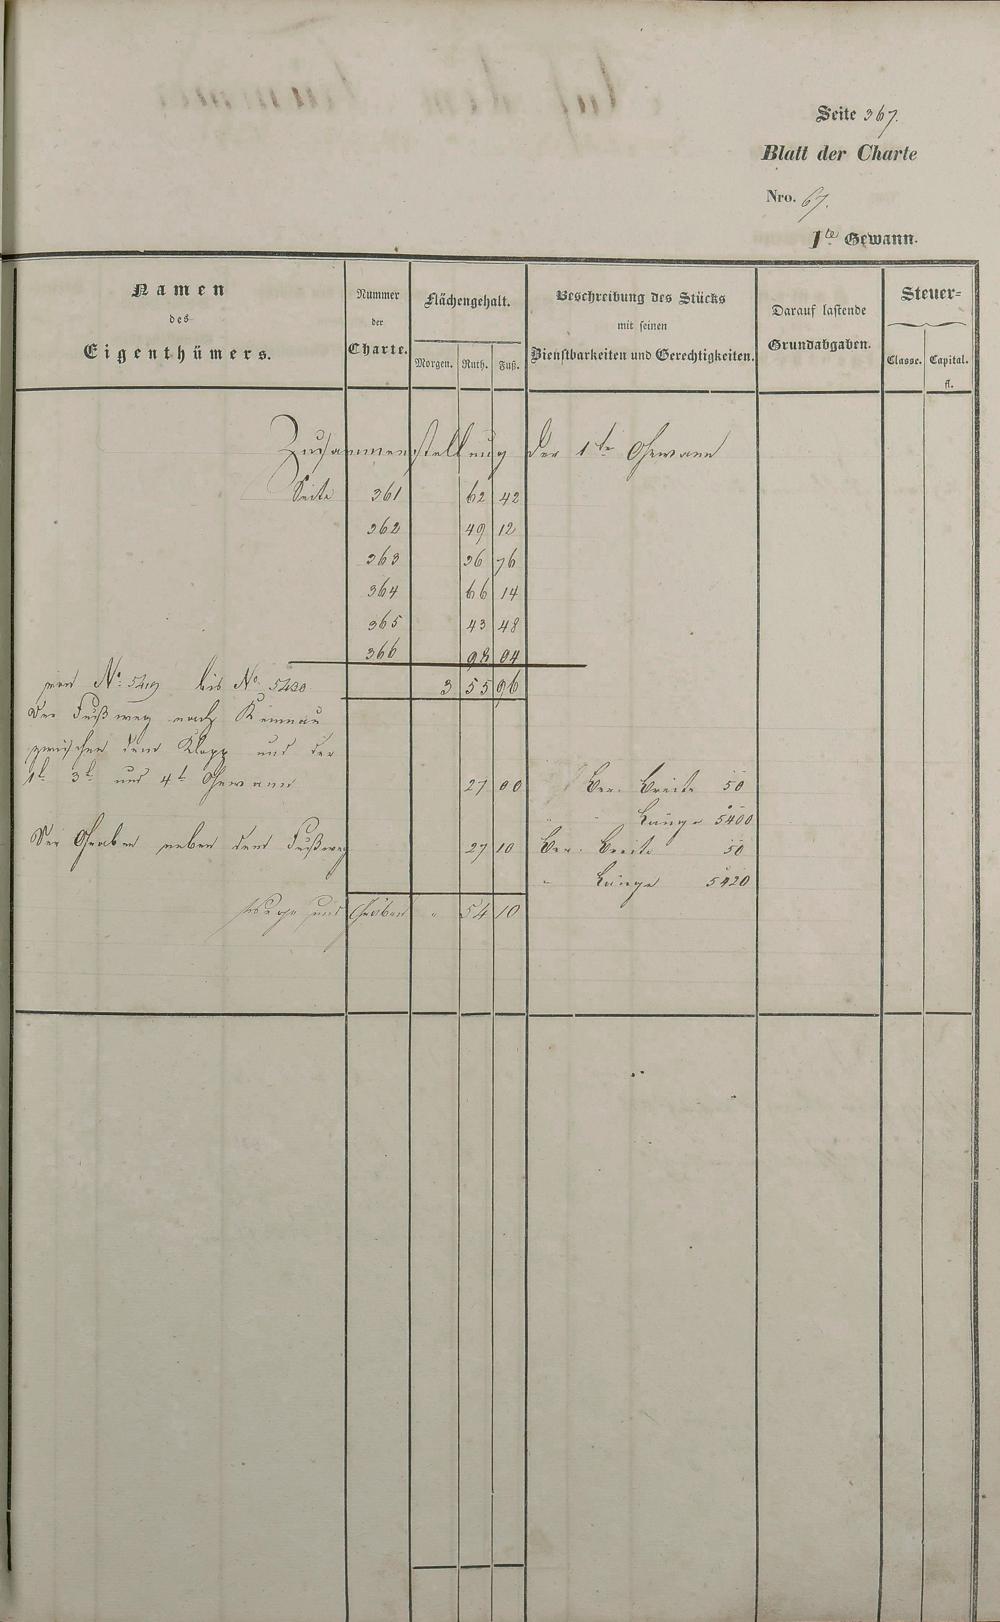 Seite 367.
Blatt der Charte
Nro. 67.
1te Gewann.
Namen
des
Eigenthümers.
Nummer
der
Charte.
Flächengehalt.
Morgen. Ruth. Fuß.
Beschreibung des Stücks
mit seinen
Dienstbarkeiten und Gerechtigkeiten.
Darauf lastende
Grundabgaben.
Steuer-
Classe. Capital.
fl.
Zusammenstellung der 1te Gewann
Seite 361 62 42
362 49 12
363 36 76
364 66 14
365 43 48
366 98 04
3 55 96
von No. 5419 bis No. 5430
Der Fußweg nach
zwischen dem Klopp und der
1te 3te und 4te Gewann 27 00 Ber. Breite 50
" " Länge 5400
Der Graben neben dem Fußweg 27 10 Ber. Breite 50
" Länge 5420
Wege und Gräben " 54 10